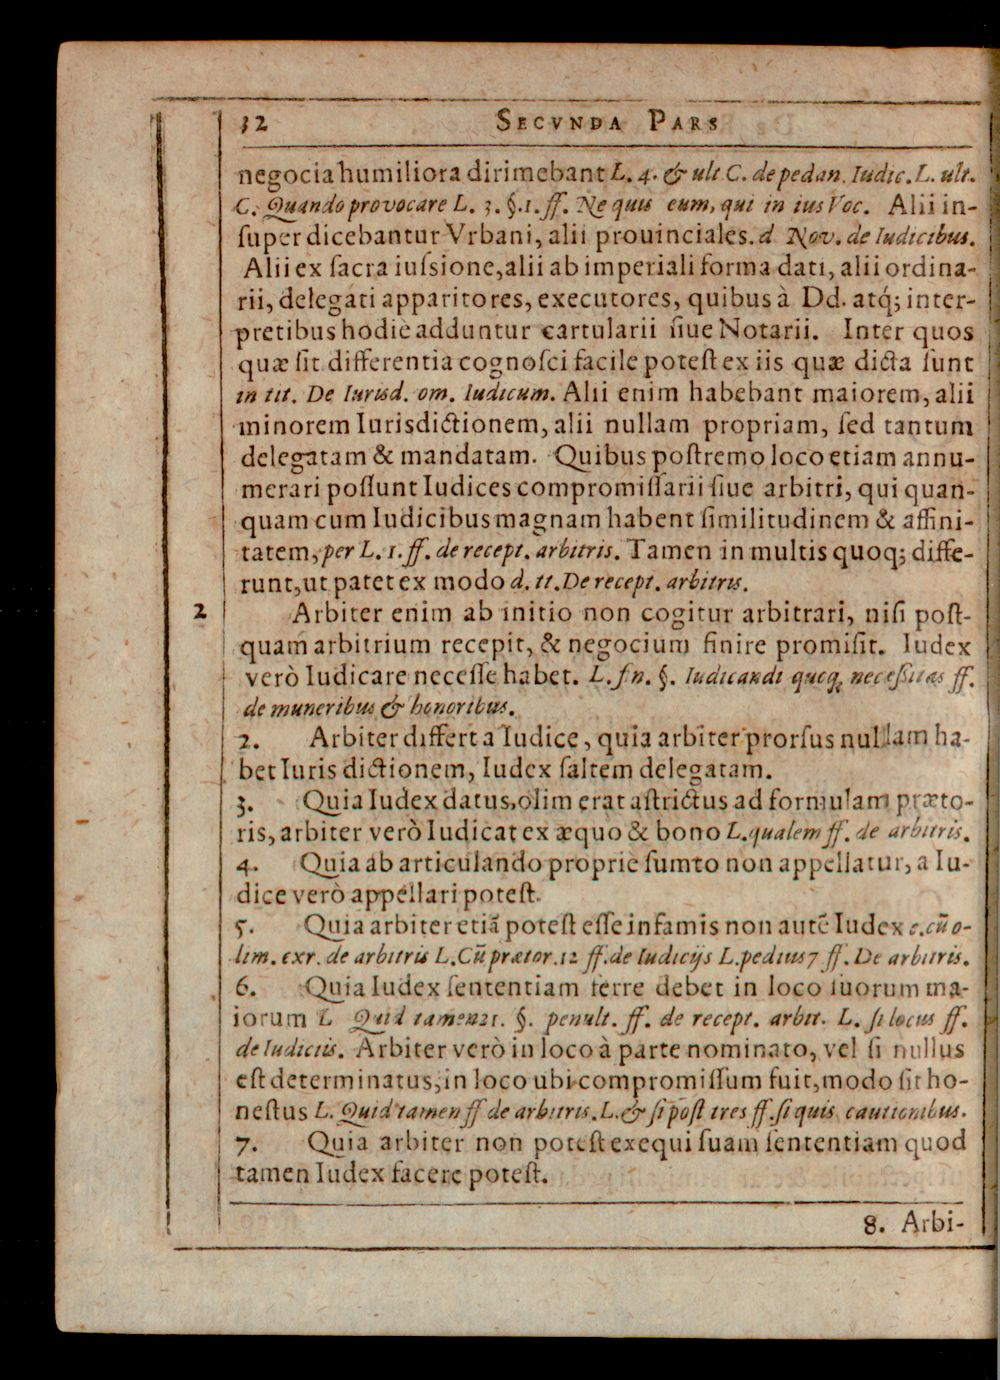 32 SECVNDA PARS
negocia humiliora dirimebant L. 4. & ult C. de pedan. Iudic. L. ult.
C. Quando provocare L. 3. §. 1. ff. Ne quis eum, qui in ius Voc. Alii in-
ſuper dicebantur Vrbani, alii prouinciales. d Nov. de Iudicibus.
Alii ex ſacra iuſsione, alii ab imperiali forma dati, alii ordina-
rii, delegati apparitores, executores, quibus à Dd. atq́; inter-
pretibus hodiè adduntur cartularii ſiue Notarii. Inter quos
quæ ſit differentia cognoſci facile poteſt ex iis quæ dicta ſunt
in tit. De Iurisd. om. Iudicum. Alii enim habebant maiorem, alii
minorem Iurisdictionem, alii nullam propriam, ſed tantum
delegatam & mandatam. Quibus poſtremo loco etiam annu-
merari poſſunt Iudices compromiſſarii ſiue arbitri, qui quan-
quam cum Iudicibus magnam habent ſimilitudinem & affini-
tatem, per L. 1. ff. de recept. arbitris. Tamen in multis quoq; diffe-
runt, ut patet ex modo d. tt. De recept. arbitris.
2 Arbiter enim ab initio non cogitur arbitrari, niſi poſt-
quam arbitrium recepit, & negocium finire promiſit. Iudex
verò Iudicare neceſſe habet. L. fin. §. Iudicandi quoq; neceßitas ff.
de muneribus & honoribus.
2. Arbiter differt a Iudice, quia arbiter prorſus nullam ha-
bet Iuris dictionem, Iudex ſaltem delegatam.
3. Quia Iudex datus, olim erat aſtrictus ad formulam præto-
ris, arbiter verò Iudicat ex æquo & bono L. qualem ff. de arbitris.
4. Quia ab articulando propriè ſumto non appellatur, a Iu-
dice verò appellari poteſt.
5. Quia arbiter etiã poteſt eſſe infamis non autẽ Iudex c. cũ o-
lim. exr. de arbitris L. Cũ prætor. 12 ff. de Iudicijs L. pedius 7 ff. De arbitris.
6. Quia Iudex ſententiam ferre debet in loco ſuorum ma-
iorum L Quid tamen 21. §. penult. ff. de recept. arbit. L. ſi locus ff.
de Iudiciis. Arbiter verò in loco à parte nominato, vel ſi nullus
eſt determinatus, in loco ubi compromiſſum fuit, modo ſit ho-
neſtus L. Quid tamen ff de arbitris. L. & ſi poſt tres ff. ſi quis cautionibus.
7. Quia arbiter non poteſt exequi ſuam ſententiam quod
tamen Iudex facere poteſt.
8. Arbi-